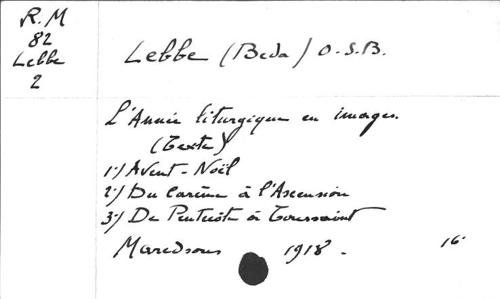 R.M
82
Lebbe
2
Lebbe (Beda) O.S.B.
L'Année liturgique en images.
(Texte)
1°) Avent-Noël
2°) Du Carême à l'Ascension
3°) De Pentecôte à Toussaint
Maredsous 1918. 16°